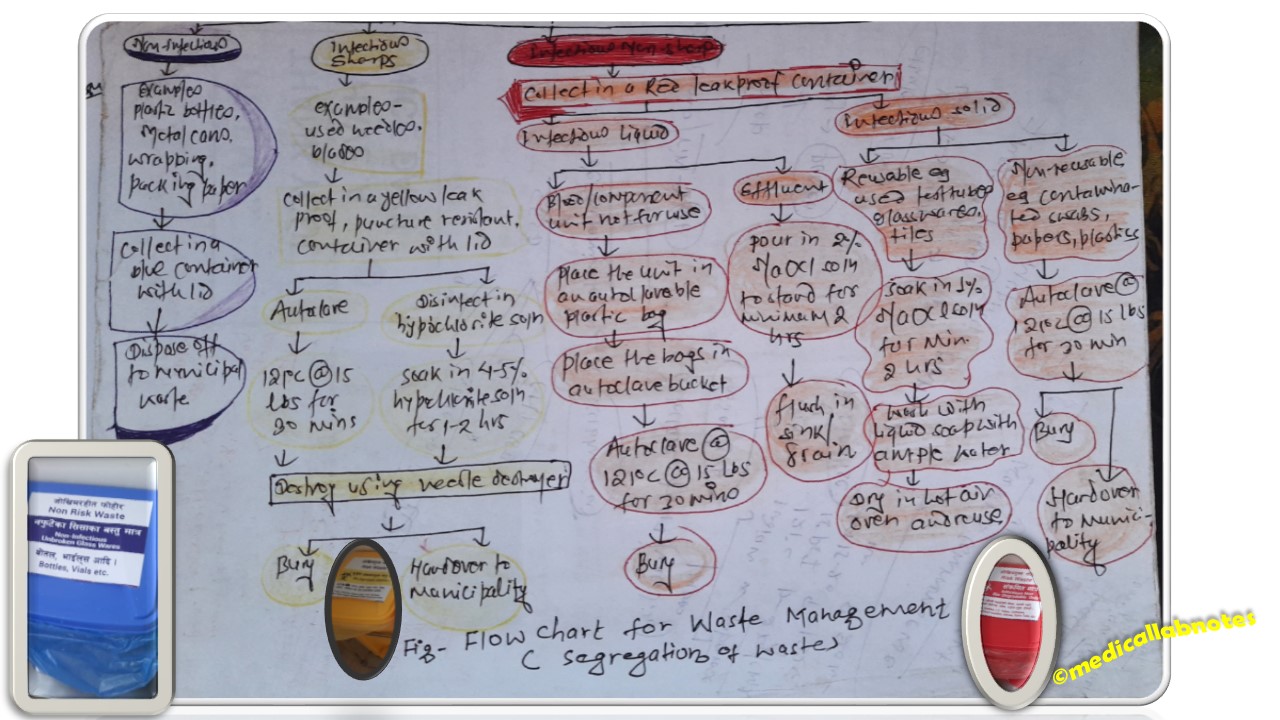 Non-infectious
Examples
plastic bottles,
Metal cans.
wrapping,
packing paper
Collect in a
blue container
with lid
Dispose off
to municipal
waste
Infectious
Sharps
examples-
used needles.
blades
Collect in a yellow leak
proof, puncture resistant.
container with lid
Autoclave
121°C @ 15
lbs for
30 mins
Disinfect in
hypochlorite soln
soak in 4-5%
hypochlorite soln
for 1-2 hrs
Destroy using needle destroyer
Bury
Handover to
Municipality
Infectious Non-sharp
Collect in a Red leakproof container
Infectious liquid
Blood/component
unit not for use
Place the unit in
an autoclavable
plastic bag
place the bags in
autoclave bucket
Autoclave @
121°C @ 15 lbs
for 30 mins
Bury
Effluent
pour in 2%
NaOCl soln
to stand for
minimum 2
hrs
flush in
sink/
drain
Infectious solid
Reusable eg
used testtubes
glasswares,
tiles
soak in 1%
NaOCl soln
for min
2 hrs
wash with
liquid soap with
ample water
Dry in hot air
oven and reuse
Non-reusable
eg contamina-
ted swabs,
papers, plastics
Autoclave @
121°C @ 15 lbs
for 30 min
Bury
Handover
to munici-
pality
Fig- Flow Chart for Waste Management
( Segregation of wastes
जोखिमरहीत फोहोर
Non Risk Waste
नफुटेका सिसाका बस्तु मात्र
Non-Infectious
Unbroken Glass Wares
बोतल, भाईल्स आदि ।
Bottles, Vials etc.
Risk Waste
©medicallabnotes